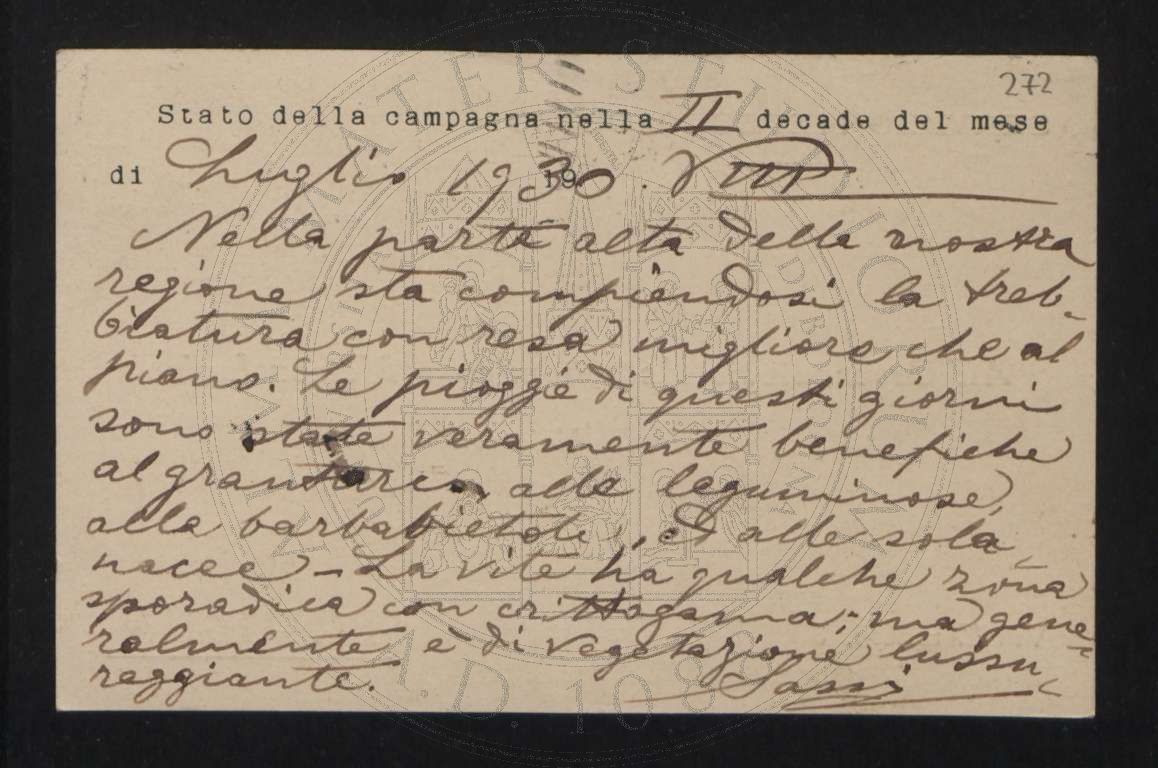 272
Stato della campagna nella II decade del mese
di Luglio 1930. VIII°
Nella parte alta della nostra
regione sta compiendosi la treb-
biatura con resa migliore che al
piano. Le pioggie di questi giorni
sono state veramente benefiche
al granturco, alle leguminose,
alla barbabietole, ed alle sola-
nacee. - La vite ha qualche zona
sporadica con crittogama; ma gene-
ralmente è di vegetazione lussu-
reggiante. Sassi
ALMA MATER STUDIORUM
A.D. 1088